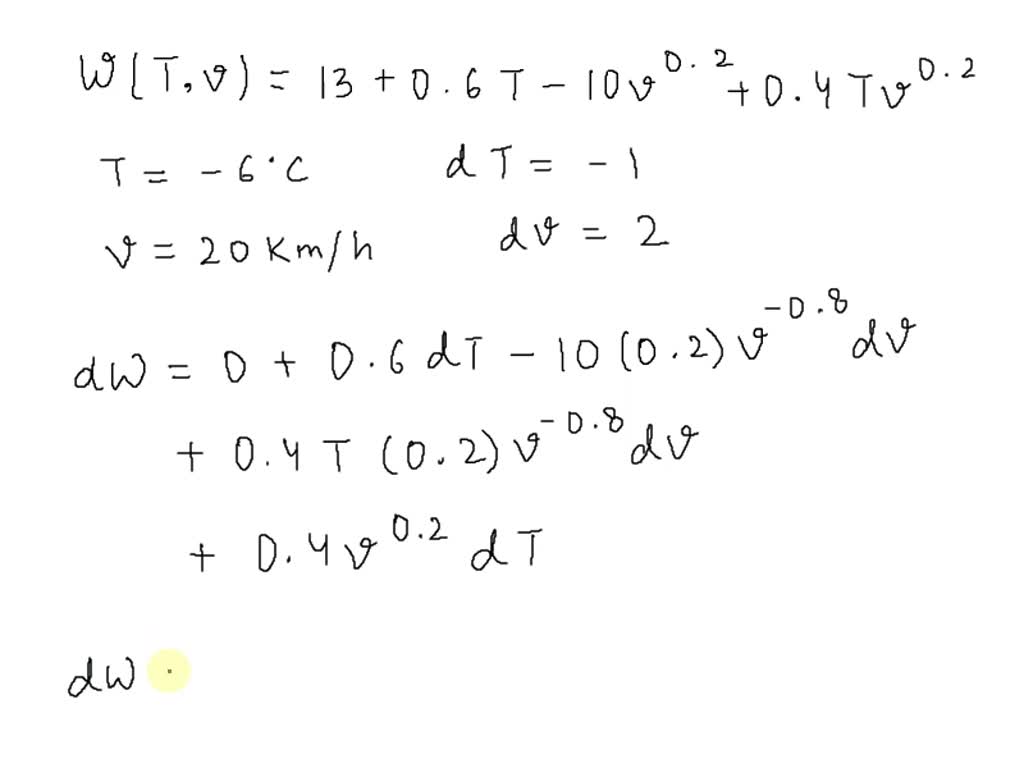 W(T,v) = 13 + 0.6 T - 10v^0.2 + 0.4 Tv^0.2
T = -6°C dT = -1
v = 20 Km/h dv = 2
dW = 0 + 0.6 dT - 10(0.2)v^-0.8 dv
+ 0.4 T (0.2) v^-0.8 dv
+ 0.4v^0.2 dT
dW